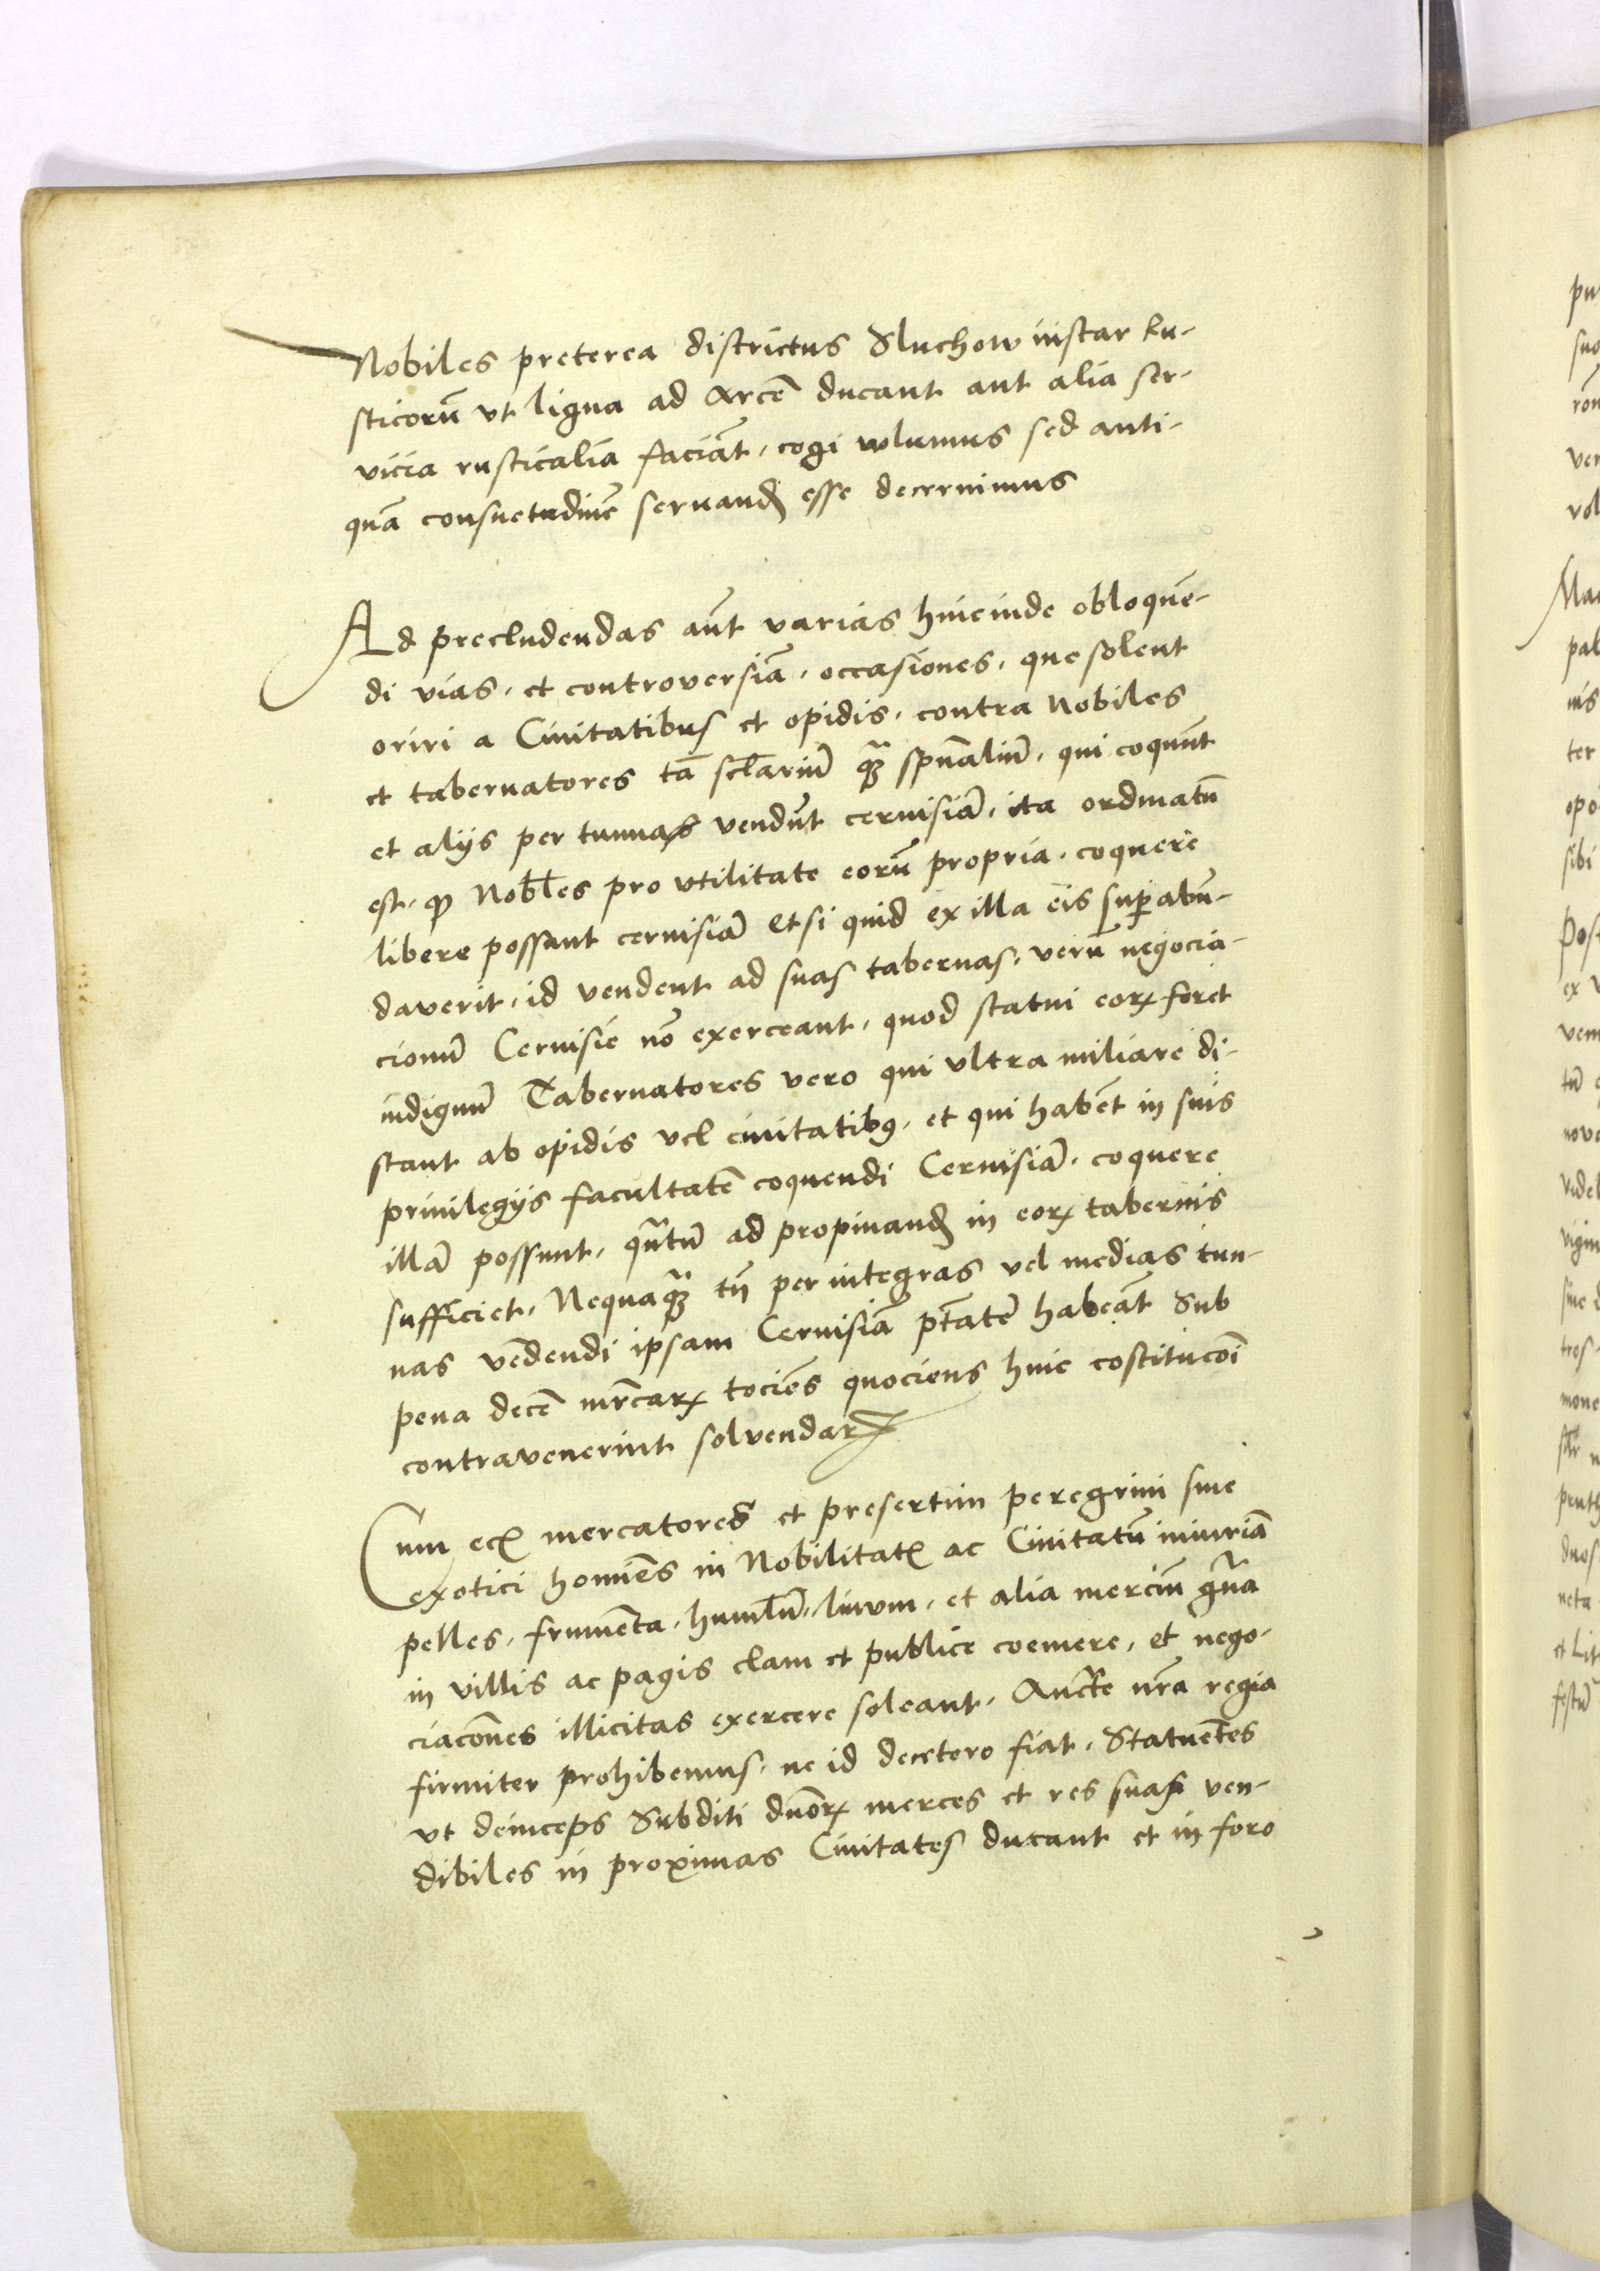 Nobiles preterea districtus Sluchow instar Ru-
sticorū vt ligna ad Arcē ducant aut alia ser-
vicia rusticalia faciāt, cogi nolumus sed anti-
quā consuetudinē seruand esse decernimus
Ad precludendas aūt varias hincinde obloquē-
di vias, et controversiā, occasiones, que solent
oriri a Ciuitatibus et opidis, contra Nobiles
et tabernatores tā sclariū qȝ spūaliū, qui coquūt
et alijs per tunnas vendūt ceruisiā, ita ordinatū
est, qꝫ Nobiles pro vtilitate eorū propria, coquere
libere possunt ceruisiā Et si quid ex illa eis suꝑabū-
daverit, id vendent ad suas tabernas, verū negocia-
cionū Ceruisie nō exerceant, quod statui eorꝝ foret
indignū Tabernatores vero qui vltra miliare di-
stant ab opidis vel ciuitatibꝰ, et qui habēt in suis
priuilegijs facultatē coquendi Ceruisiā, coquere
illā possunt, quātū ad propinand in eorꝝ tabernis
sufficiet, Nequaqȝ tn̄ per integras vel medias tun-
nas vēdendi ipsam Ceruisiā ptātē habeāt Sub
pena decē mrcarꝝ tociēs quociens huic costitucōi
contravenerint solvendarꝝ
Cum ec mercatores et presertim peregrini siue
exotici homiēs in Nobilitatꝭ ac Ciuitatū iniuriā
pelles, frumēta, humlū, linum, et alia merciū gn̄a
in villis ac pagis clam et publice coemere, et nego-
ciacōnes illicitas exercere soleant, Aucte nr̄a regia
firmiter prohibemus, ne id decetero fiat, Statuētes
vt deinceps Subditi dnōrꝝ merces et res suas ven-
dibiles in proximas Ciuitates ducant et in foro